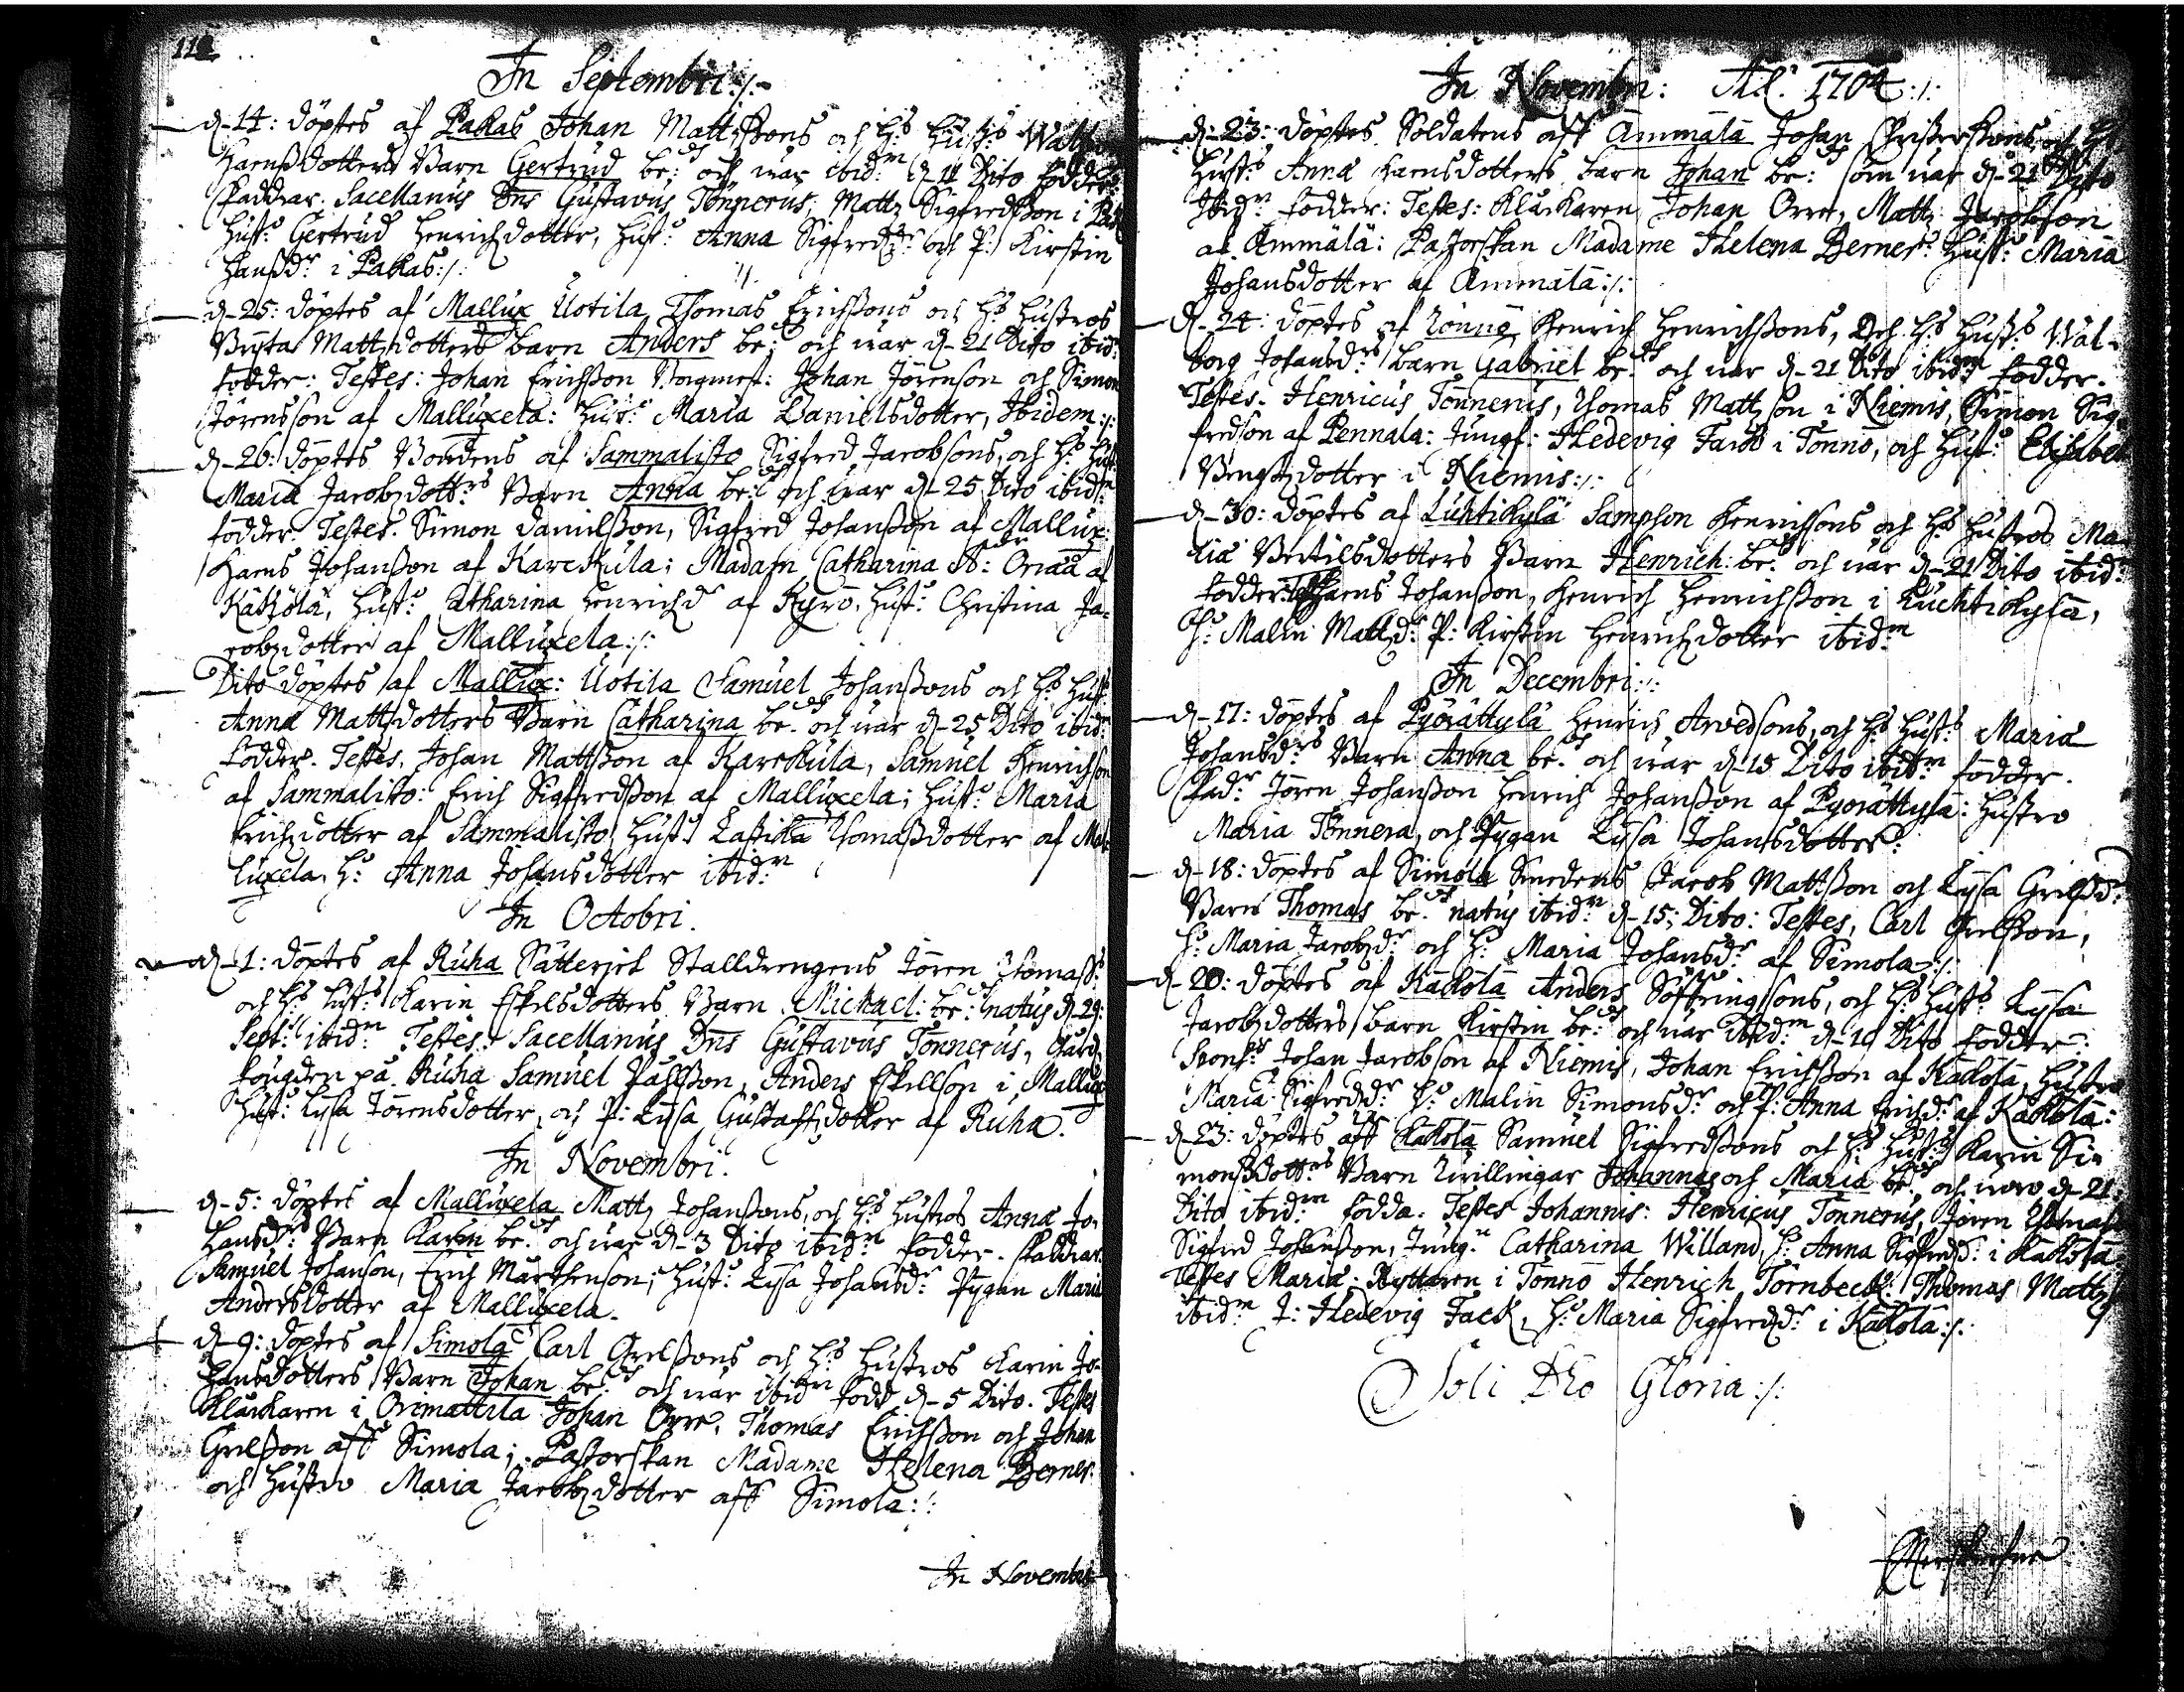 118
In Septembri:/:
d. 14: döptes af Pakas Johan Mattssons och h:s hust:s Walb
Hansdotters Barn Gertrud be:d och war ibid:m d. 11 Dito födder.
Faddrar. Sacellanus Dns Gustavus Tönnerus; Mattz Sigfredsson i Pak
Hust: Gertrud Henrichzdotter, Hust: Anna Sigfredzd:r och P: Kirstin
Hansd:r i Pakas:/:
d. 25: döptes af Mallux Uotila Thomas Erichssons och h:s hustros
Bryta Mattzdotters barn Anders be:d och war d. 21 Dito ibid:
födder: Testes: Johan Erichsson Borgmest: Johan Jörenson och Simon
Jörensson af Malluxela: Hust: Maria Danielsdotter, Ibidem:/:
d. 26: döptes Bondens af Sammalisto Sigfred Jacobsons, och h:s hust
Maria Jacobzdott:rs Barn Anna be:d och war d. 25 Dito ibid:m
födder. Testes. Simon Danielsson, Sigfred Johansson af Mallux:
Hans Johansson af Karckula; Madam Catharina af
Käkölä, Hust: Catharina Henrichzd:r af Kyrö. Hust: Christina Ja-
cobzdotter af Malluxela:/:
Dito döptes af Mallux: Uotila Samuel Johanssons och h:s hust
Anna Mattzdotters Barn Catharina be:d och war d. 25 Dito ibid:
födder. Testes, Johan Mattsson af Karckula, Samuel Henrichson
af Sammalisto: Erich Sigfredsson af Malluxela; Hust: Maria
Erichzdotter af Sammalisto, Hust: Thomassdotter af Mal
luxela, h: Anna Johansdotter ibid:m
In Octobri.
d. 1: döptes af Ruha Sätterjet Stalldrengens Jören Thomass:
och h:s hust:s Karin Eskelsdotters Barn Michael: be:d natus d. 29:
Sept: ibid:m Testes: Sacellanus Dns Gustavus Tönnerus, Gård
fougden på Ruha Samuel Påhlsson, Anders Eskellson i Mallux
Hust: Lysa Jörensdotter, och P: Lysa Gustaffzdotter af Ruha.
In Novembri.
d. 5: döptes af Malluxela Mattz Johanssons, och h:s hustros Anna Jo-
hansd:rs Barn Karin be:d och war d. 3 Dito ibid:m födder. Faddrar.
Samuel Johanson, Erich Marthenson; Hust: Lysa Johansd:r Pygan Maria
Andersdotter af Malluxela.
d. 9: döptes af Simola Carl Grelssons och h:s hustros Karin Jo-
hansdotters Barn Johan be:d och war ibid:m född d. 5 Dito. Testes
Klåckaren i Orimattila Johan Orre, Thomas Erichsson och Johan
Grelsson aff Simola; Pastorskan Madame Helena Berner
och Hustro Maria Jacobzdotter aff Simola:/:
In Novembri
In Novembri: Ad: 1704:/:
d. 23: döptes Soldatens aff Ammälä Johan Christerssons och h:s
Hust:s Anna Hansdotters barn Johan be:d som war d. 21 Dito
Ibid:m födder: Testes: Klåckaren Johan Orre, Mattz Jacobson
af Ammälä: Pastorskan Madame Helena Berner: Hust: Maria
Johansdotter af Ammälä:/:
d. 24: döptes af Tönnö Henrich Henrichssons, Och h:s hust:s Wal-
borg Johansd:rs barn Gabriel be:d och war d. 21 Dito ibid:m födder.
Testes. Henricus Tönnerus, Thomas Mattzson i Niemis, Simon Sig-
fredson af Pennala: Jungf: Hedevig Fack i Tönnö, och Hust: Elisabet
Bengtzdotter i Niemis:/:
d. 30: döptes af Luhtikylä Sampson Henrichsons och h:s hustros Ma-
ria Bertilsdotters Barn Henrich: be:d och war d. 21 Dito ibid:
födder: Testes Hans Johansson, Henrich Henrichsson i Luchtikylä,
h: Malin Mattzd:r P: Kirstin Henrichzdotter ibid:m
In Decembri:/:
d. 17: döptes af Pyörättylä Henrich Arvedsons, och h:s hust:s Maria
Johansd:rs Barn Anna be:d och war d. 15 Dito ibid:m födder.
Fad:r Jören Johansson Henrich Johansson af Pyörättylä: Hustro
Maria Tönnera, och Pygan Lysa Johansdotter:
d. 18: döptes af Simola Smedens Jacob Mattsson och Lysa Grelsd:r
Barn Thomas be:d natus ibid:m d. 15: Dito: Testes, Carl Grelsson,
h: Maria Jacobzd:r och h: Maria Johansd:r af Simola:/:
d. 20: döptes af Käkölä Anders Söffringssons, och h:s hust:s Lysa
Jacobzdotters barn Kirstin be:d och war ibid:m d. 19 Dito födder:
Johan Jacobson af Niemis, Johan Erichsson af Käkölä, Hustro
Maria Sigfredzd:r h: Malin Simonsd:r och P: Anna Erichzd:r af Käkölä:
d. 23: döptes aff Käkölä Samuel Sigfredssons och h:s hust:s Karin Si-
monssdott:rs Barn Twillingar Johannes och Maria be:d och woro d. 21:
Dito ibid:m födda. Testes Johannis: Henricus Tönnerus, Jören Thomass
Sigfred Johansson, Jung:n Catharina Willand, h: Anna Sigfredzd: i Käkölä
Testes Mariæ: Ryttaren i Tönnö Henrich Törnbeck: Thomas Mattz
ibid:m J: Hedevig Fack, h: Maria Sigfredzd:r i Käkölä:/:
Soli Deo Gloria:/: